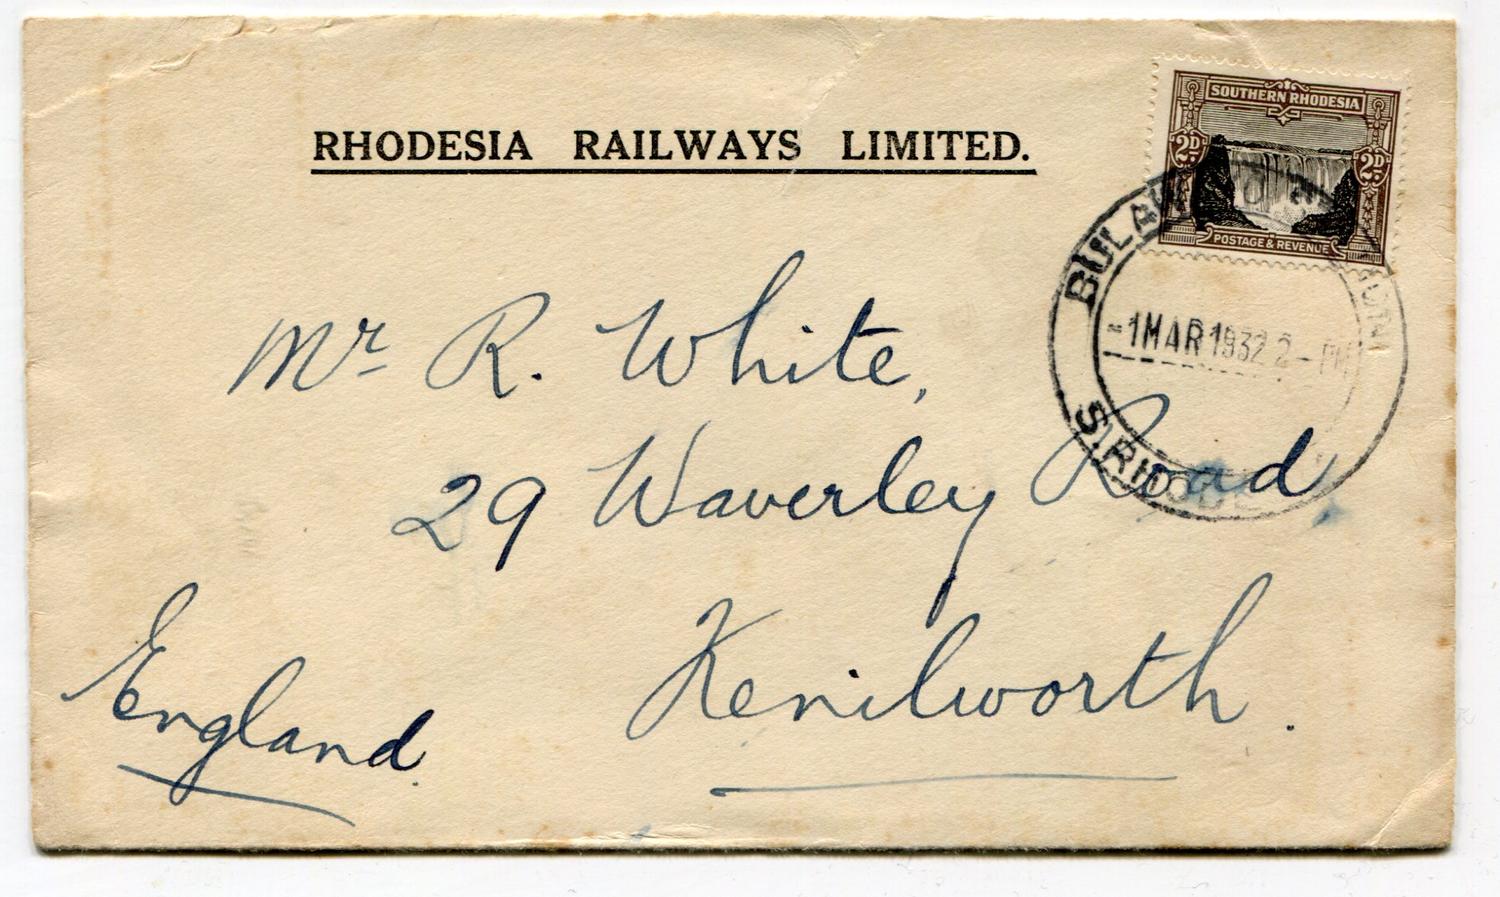 RHODESIA RAILWAYS LIMITED.
SOUTHERN RHODESIA
2D. 2D.
POSTAGE & REVENUE
-1 MAR 1932 2 - PM
S. RHODE
Mr R. White,
29 Waverley Road
Kenilworth.
England.